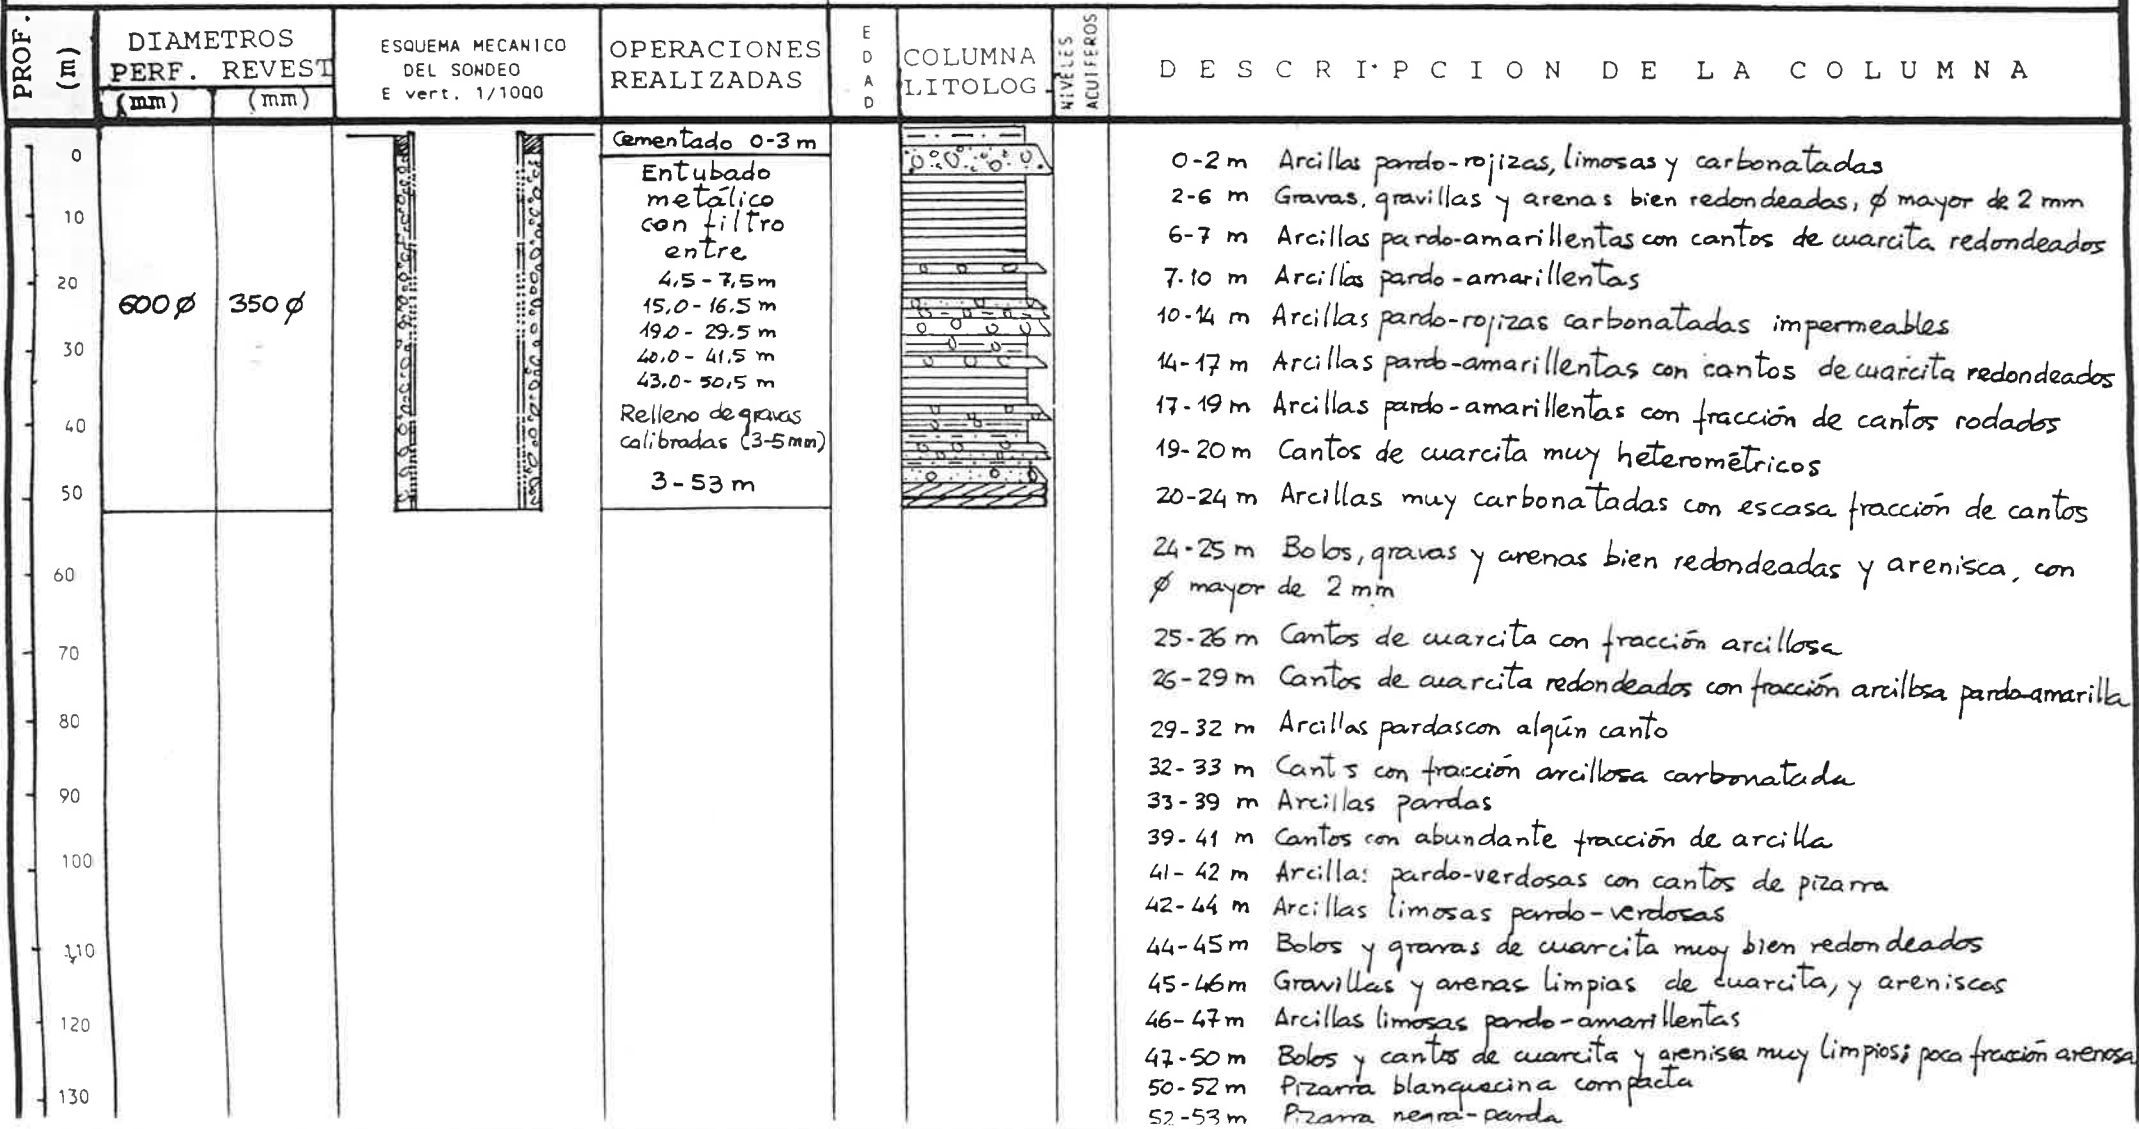 PROF. (m)
DIAMETROS
PERF. REVEST
(mm) (mm)
ESQUEMA MECANICO
DEL SONDEO
E vert. 1/1000
OPERACIONES
REALIZADAS
EDAD
COLUMNA
LITOLOG.
NIVELES
ACUIFEROS
DESCRIPCION DE LA COLUMNA
0
10
20
30
40
50
60
70
80
90
100
110
120
130
600 ø 350 ø
Cementado 0-3 m
Entubado
metálico
con filtro
entre
4,5 - 7,5 m
15,0 - 16,5 m
19.0 - 29.5 m
40,0 - 41,5 m
43,0 - 50,5 m
Relleno de gravas
calibradas (3-5 mm)
3 - 53 m
0-2 m Arcillas pardo-rojizas, limosas y carbonatadas
2-6 m Gravas, gravillas y arenas bien redondeadas, ø mayor de 2 mm
6-7 m Arcillas pardo-amarillentas con cantos de cuarcita redondeados
7-10 m Arcillas pardo-amarillentas
10-14 m Arcillas pardo-rojizas carbonatadas impermeables
14-17 m Arcillas pardo-amarillentas con cantos de cuarcita redondeados
17-19 m Arcillas pardo-amarillentas con fracción de cantos rodados
19-20 m Cantos de cuarcita muy heterométricos
20-24 m Arcillas muy carbonatadas con escasa fracción de cantos
24-25 m Bolos, gravas y arenas bien redondeadas y arenisca, con
ø mayor de 2 mm
25-26 m Cantos de cuarcita con fracción arcillosa
26-29 m Cantos de cuarcita redondeados con fracción arcillosa pardo-amarilla
29-32 m Arcillas pardas con algún canto
32-33 m Cant s con fracción arcillosa carbonatada
33-39 m Arcillas pardas
39-41 m Cantos con abundante fracción de arcilla
41-42 m Arcilla: pardo-verdosas con cantos de pizarra
42-44 m Arcillas limosas pardo-verdosas
44-45 m Bolos y gravas de cuarcita muy bien redondeados
45-46 m Gravillas y arenas limpias de cuarcita, y areniscas
46-47 m Arcillas limosas pardo-amarillentas
47-50 m Bolos y cantos de cuarcita y arenisca muy limpios; poca fracción arenosa
50-52 m Pizarra blanquecina compacta
52-53 m Pizarra negra-parda